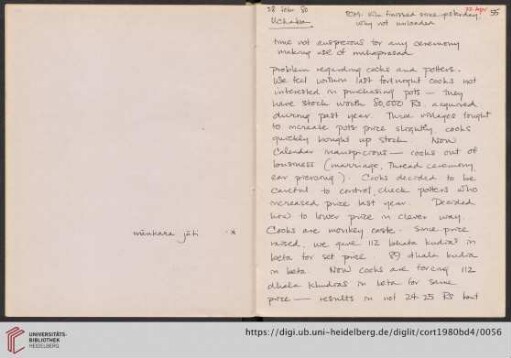 mūnhara jāti *
28 Febr 80
Uchaba
why not unloaded
55
time not auspicious for any ceremony
making use of mahaprasad
problem regarding cooks and potters.
We feel within last fortnight cooks not
interested in purchasing pots — they
have stock worth 80,000 Rs acquired
during past year. Three villages fought
to increase pots price slightly, cooks
quickly bought up stock. Now
Calendar inauspicious — cooks out of
business (marriage, Thread ceremony
ear piercing). Cooks decided to be
careful to control, check potters who
increased price last year. Decided
how to lower price in clever way.
Cooks are monkey caste. Since price
raised, we give 112 bhata kudras in
beta for set price 89 dhala kudra
in beta. Now cooks are forcing 112
dhala khudras in beta for same
price — results in net 24-25 Rs
UNIVERSITÄTS-
BIBLIOTHEK
HEIDELBERG
https://digi.ub.uni-heidelberg.de/diglit/cort1980bd4/0056